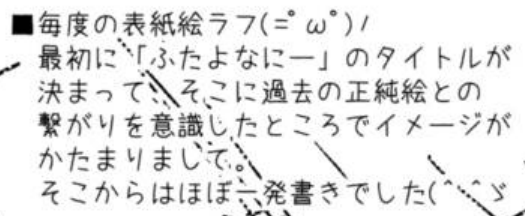 ■毎度の表紙絵ラフ(=ﾟωﾟ)ﾉ
最初に「ふたよなにー」のタイトルが
決まって、そこに過去の正純絵との
繋がりを意識したところでイメージが
かたまりまして。
そこからはほぼ一発書きでした(^^ゞ